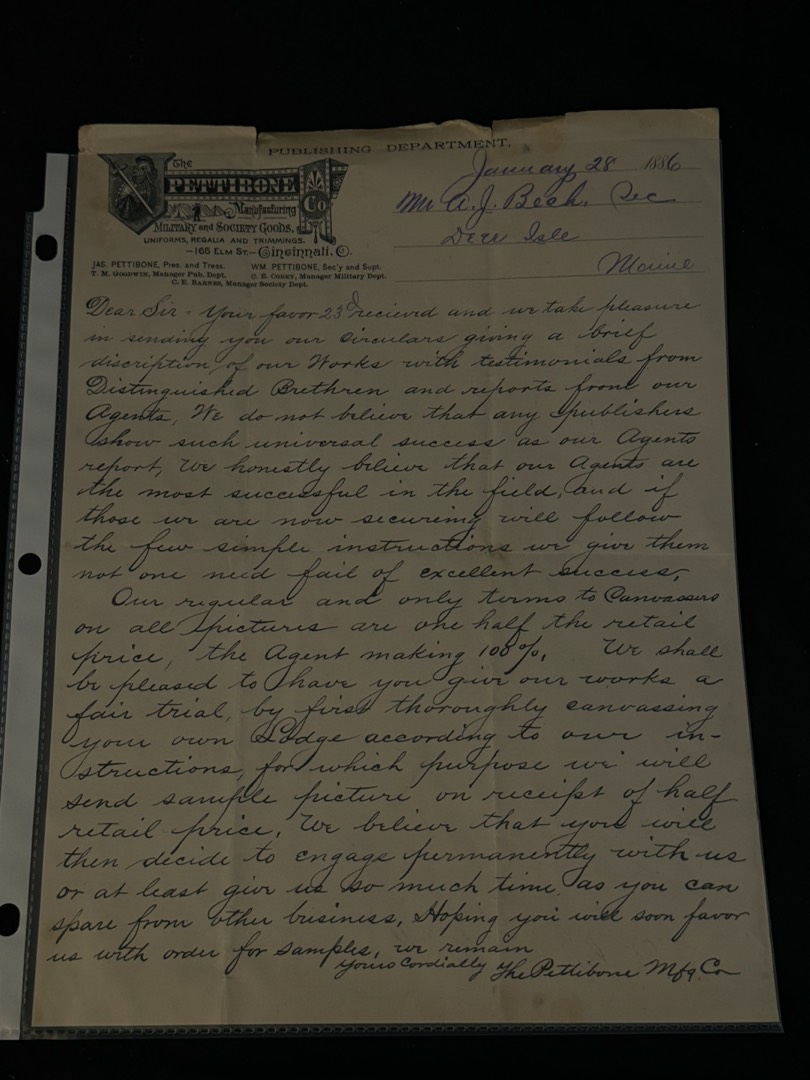 PUBLISHING DEPARTMENT.
The
PETTIBONE
Manufacturing Co
MILITARY and SOCIETY GOODS,
UNIFORMS, REGALIA AND TRIMMINGS.
—165 ELM ST.— Cincinnati, O.
JAS. PETTIBONE, Pres. and Treas. WM. PETTIBONE, Sec'y and Supt.
T. M. GOODWIN, Manager Pub. Dept. C. E. COREY, Manager Military Dept.
C. E. BARNES, Manager Society Dept.
January 28 1886
Mr A. J. Beck, Sec
Deer Isle
Maine
Dear Sir - Your favor 23d recieved and we take pleasure
in sending you our Circulars giving a brief
discription of our Works with testimonials from
Distinguished Brethren and reports from our
Agents, We do not believe that any publishers
show such universal success as our Agents
report, We honestly believe that our Agents are
the most successful in the field, and if
those we are now secureing will follow
the few simple instructions we give them
not one need fail of excellent success,
Our regular and only terms to Canvassers
on all pictures are one half the retail
price, the Agent making 100%, We shall
be pleased to have you give our works a
fair trial, by first thoroughly canvassing
your own Lodge according to our in-
structions, for which purpose we will
send sample picture on receipt of half
retail price, We believe that you will
then decide to engage permanently with us
or at least give us so much time as you can
spare from other business, Hoping you will soon favor
us with order for samples, we remain
Yours Cordially The Pettibone Mfg. Co